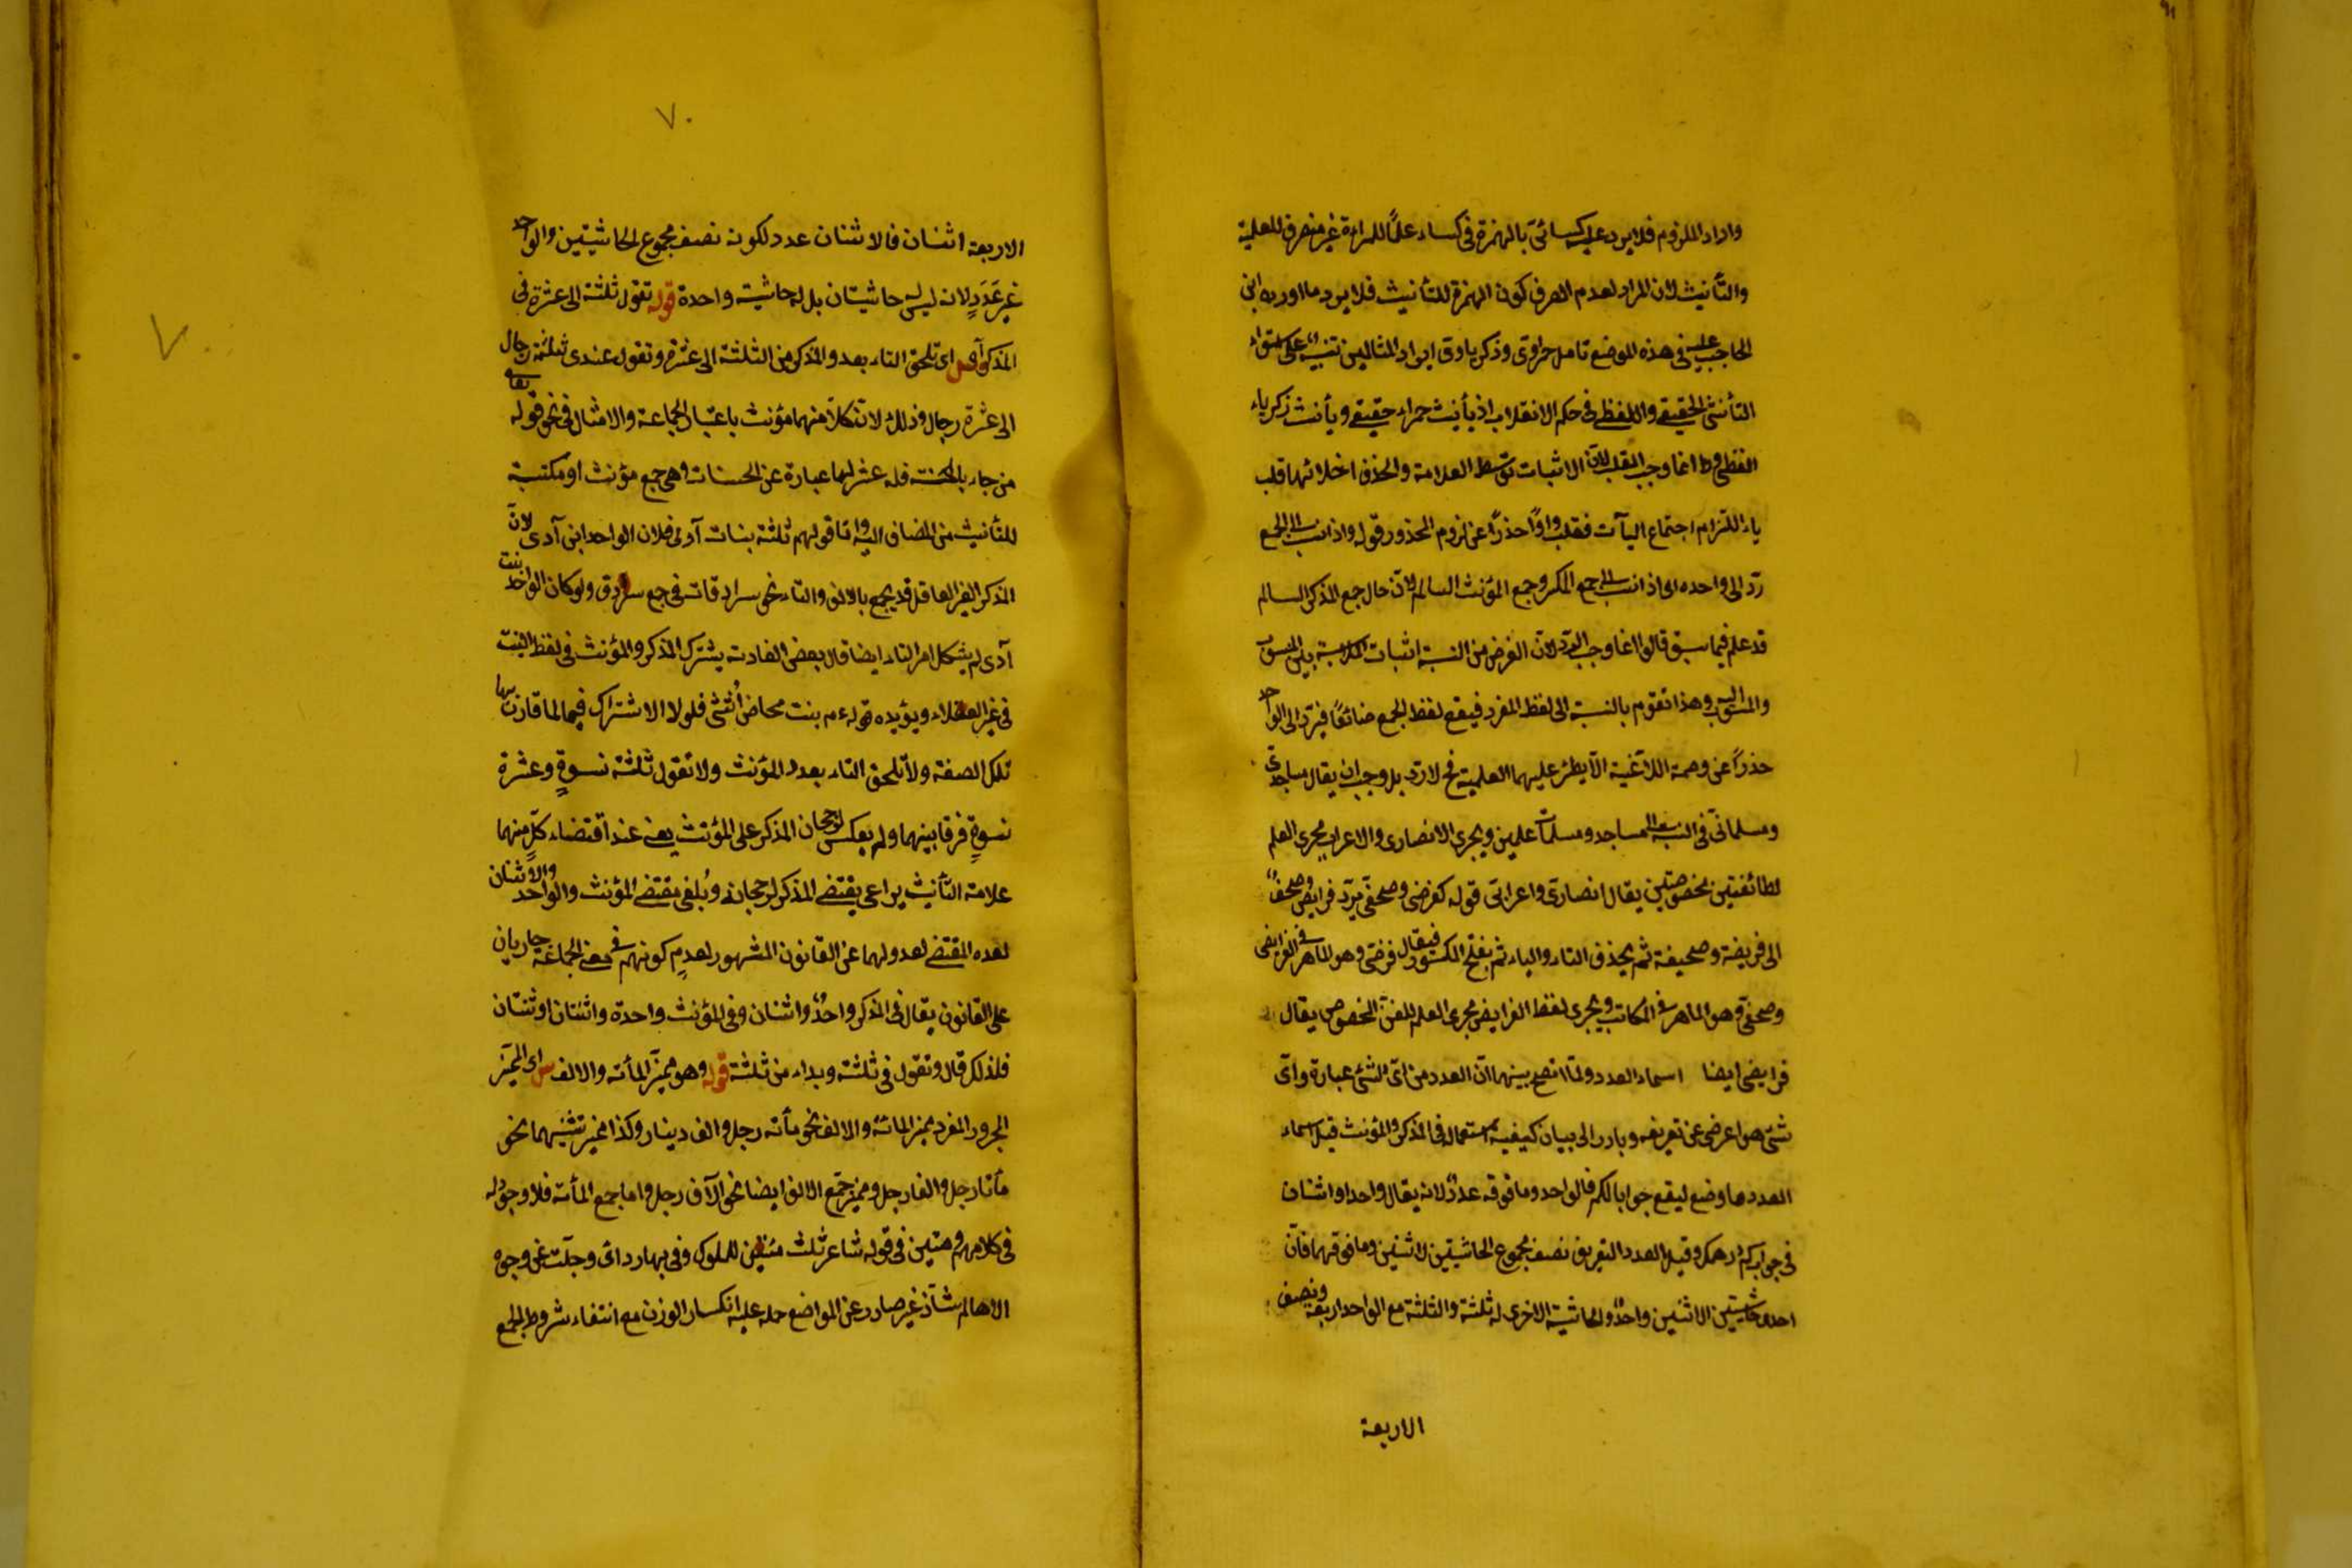 واراد الملزوم فلا يرد عليه كسائى بالهمزة فى كساء علمًا للمراة غير منصرف للعلمية
والتأنيث لان المراد لعدم الصرف كون الهمزة للتأنيث فلا يرد ما اورده ابن
الحاجب عليه فى هذه الموضع تامل حراوى وذكرياوى ايراد المثالين تنبيه على استواء
التأنيثى الحقيقى واللفظى فى حكم الانقلاب اذ تأنيث حمراء حقيقى وتأنيث زكرياء
لفظى وانما وجب القلب لان الاثبات توسط العلامة والحذف اخلا لها قلب
ياء التزام اجتماع اليآت فقلب واوًا حذرًا عن لزوم المحذور قوله واذا نسب الى الجمع
ردّ الى واحده اى اذا نسب الى جمع المكسر وجمع المؤنث السالم لان حال جمع المذكر السالم
قد علم فيما سبق قالوا انما وجب الرد لان الغرض من النسبة اثبات الملابسة بين المنسوب
والمنسوب اليه وهذا تقوم بالنسبة الى لفظ المفرد فيقع لفظ الجمع ضائعًا فيردّ الى الواحد
حذرًا عن وصمة اللاغية الا يطرء عليهما العلمية فح لا ردّ بل وجب ان يقال مساجدى
ومسلماتى فى النسبة الى مساجد ومسلمات علمين ويجرى الانصارى والاعرابى مجرى العلم
لطائفتين مخصوصتين يقال انصارى واعرابى قوله كفرضى وصحفى يردّ فرايض وصحف
الى فريضة وصحيفة ثم يحذف التاء والياء ثم يفتح المكسور فيقال فرضى وهو الماهر فى الفرايض
وصحفى وهو الماهر فى المكاتب ويجرى لفظ الفرايض مجرى العلم للفن المخصوص يقال
فرايضى ايضا اسماء العدد ولما اتضح بينهما ان العدد من اى شئ عبارة واى
شئ هو اعرض عن تعريفه وبادر الى بيان كيفية استعماله فى المذكر والمؤنث قيل اسماء
العدد ما وضع ليقع جوابا لكم فالواحد وما فوقه عددٌ لانه يقال واحد واثنان
فى جواب كم درهمك وقيل العدد التعريف نصف مجموع الحاشيتين لاثنين وما فوقهما فان
احدى حاشيتين الاثنين واحدٌ والحاشية الاخرى له ثلثة والثلثة مع الواحد اربعة ونصف
الاربعة
٧٠
الاربعة اثنان فالاثنان عدد لكونه نصف مجموع الحاشيتين والواحد
غير عَدَدٍ لانه ليس له حاشيتان بل له حاشية واحدة قوله تقول ثلثة الى عشرة فى
المذكر آه اى تلحق التاء بعدد المذكر من الثلثة الى عشرة وتقول عندى ثلثة رجال
الى عشرة رجال وذلك لان كلاً منهما مؤنث باعتبار الجماعة والامثال فى نحو قوله تعالى
من جاء بالحسنة فله عشر لهما عبارة عن الحسنات وهى جمع مؤنث او مكتسبة
للتأنيث من المضاف اليه واما قولهم ثلثة بنات آدى فلان الواحد ابن آدى لانّ
المذكر الغير العاقل قد يجمع بالالف والتاء نحو سرادقات فى جمع سرادق ولو كان الواحد بنت
آدى لم يشكل امر التاء ايضا قال بعض الفادته يشترك المذكر والمؤنث فى لفظ البنت
فى غير العقلاء ويؤيده قوله عم بنت مخاض اُنثى فلولا الاشتراك فيها لما قارن بها
تلك الصفة ولا تلحق التاء بعدد المؤنث ولا تقول ثلثة نسوةٍ وعشرة
نسوةٍ فرقا بينهما ولم يعكس لرجحان المذكر على المؤنث يعنى عند اقتضاء كلّ منهما
علامة التأنيث يراعى يقتضى المذكر لرجحانه ويُلغى مقتضى المؤنث والواحد والاثنان
لعدم المقتضى لعدولهما عن القانون المشهور لعدم كونهم فى معنى الجماعة جاريان
على القانون يقال فى المذكر واحدٌ واثنان وفى المؤنث واحدة واثنتان او ثنتان
فلذلك قال وتقول فى ثلثة وبداء من ثلثة قوله وهو مميز المأته والالف اى المميز
المجرور المفرد مميز المائة والالف نحو مأته رجل والف دينار وكذا مميز تثنيهما نحو
مأتا رجل والفا رجل ومميز جمع الالف ايضا نحو الآف رجل واما جمع المأته فلا وجود له
فى كلامهم ومئين فى قوله شاعر ثلث مئين للملوك وفى بها ردائى وجلت عن وجوه
الاهاتم شاذ غير صادر عن المواضع حمله عليه انكسار الوزن مع انتفاء شروط الجمع